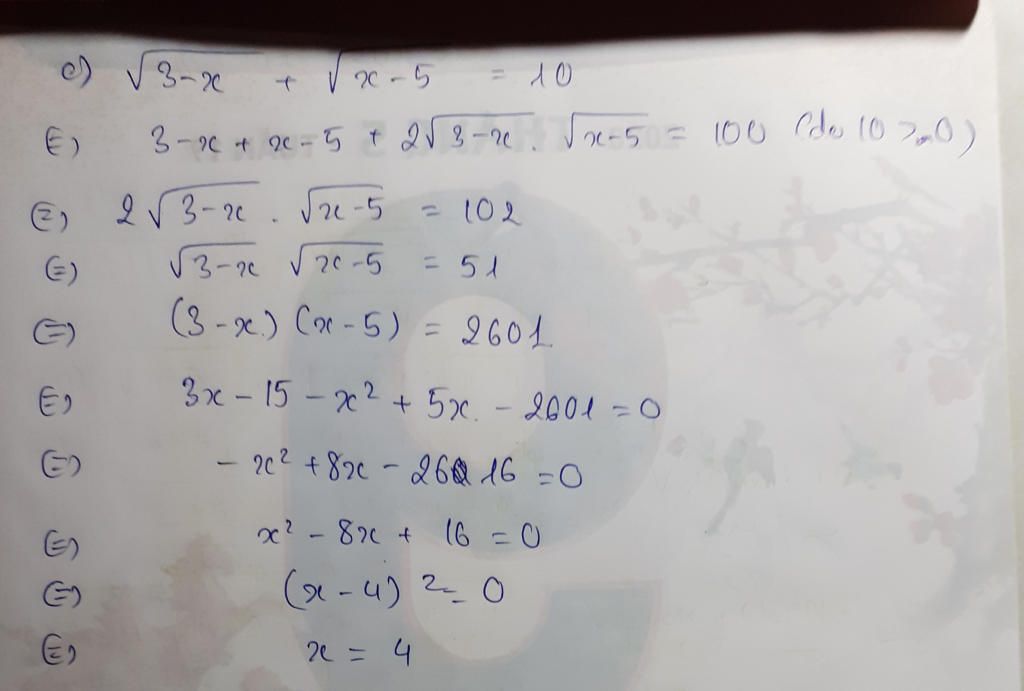 c) √3-x + √x-5 = 10
(=) 3-x + x-5 + 2√3-x . √x-5 = 100 (do 10 ≥ 0)
(=) 2√3-x . √x-5 = 102
(=) √3-x √x-5 = 51
(=) (3-x) (x-5) = 2601
(=) 3x - 15 - x² + 5x - 2601 = 0
(=) - x² + 8x - 2616 = 0
(=) x² - 8x + 16 = 0
(=) (x-4)² = 0
(=) x = 4